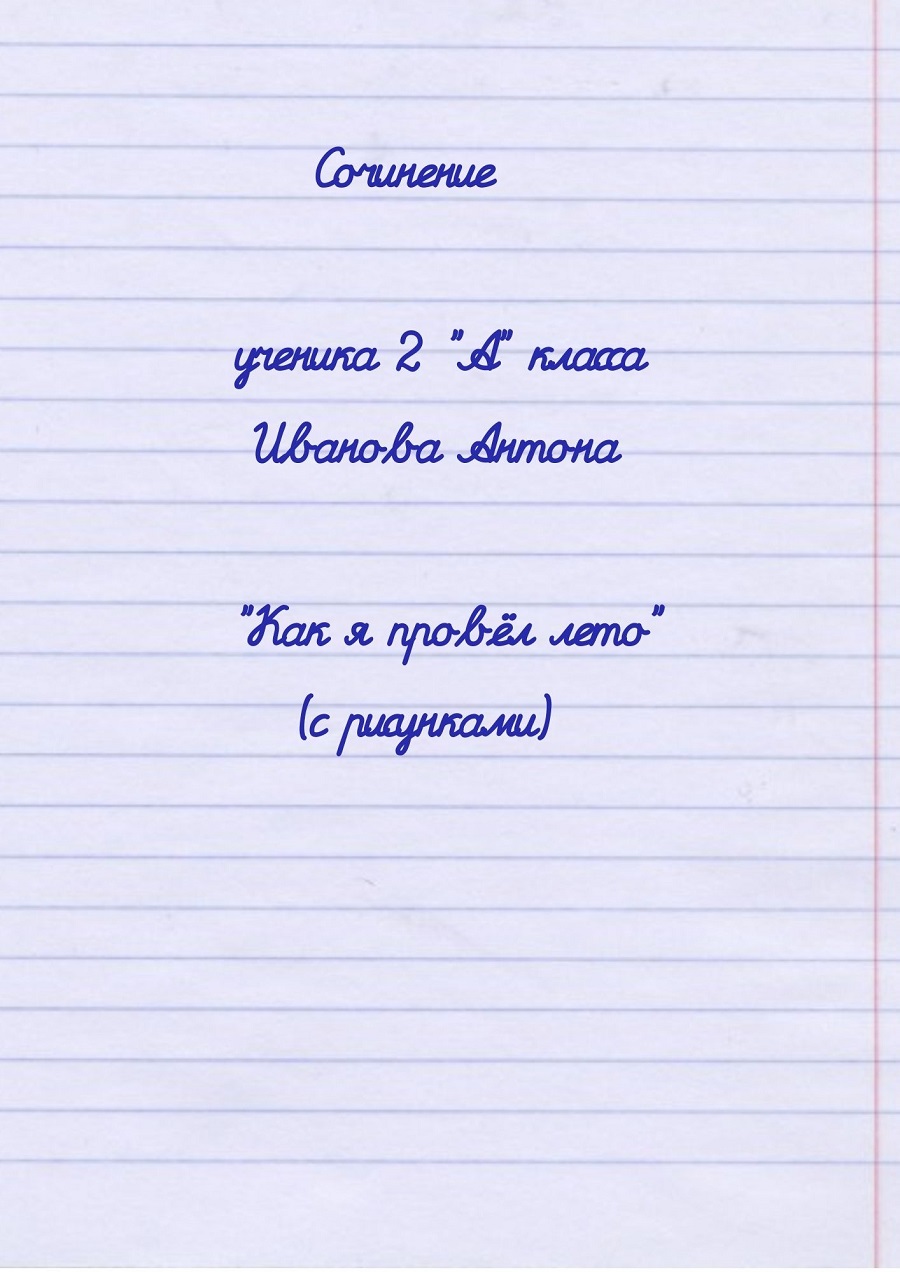 Сочинение
ученика 2 "А" класса
Иванова Антона
"Как я провёл лето"
(с рисунками)